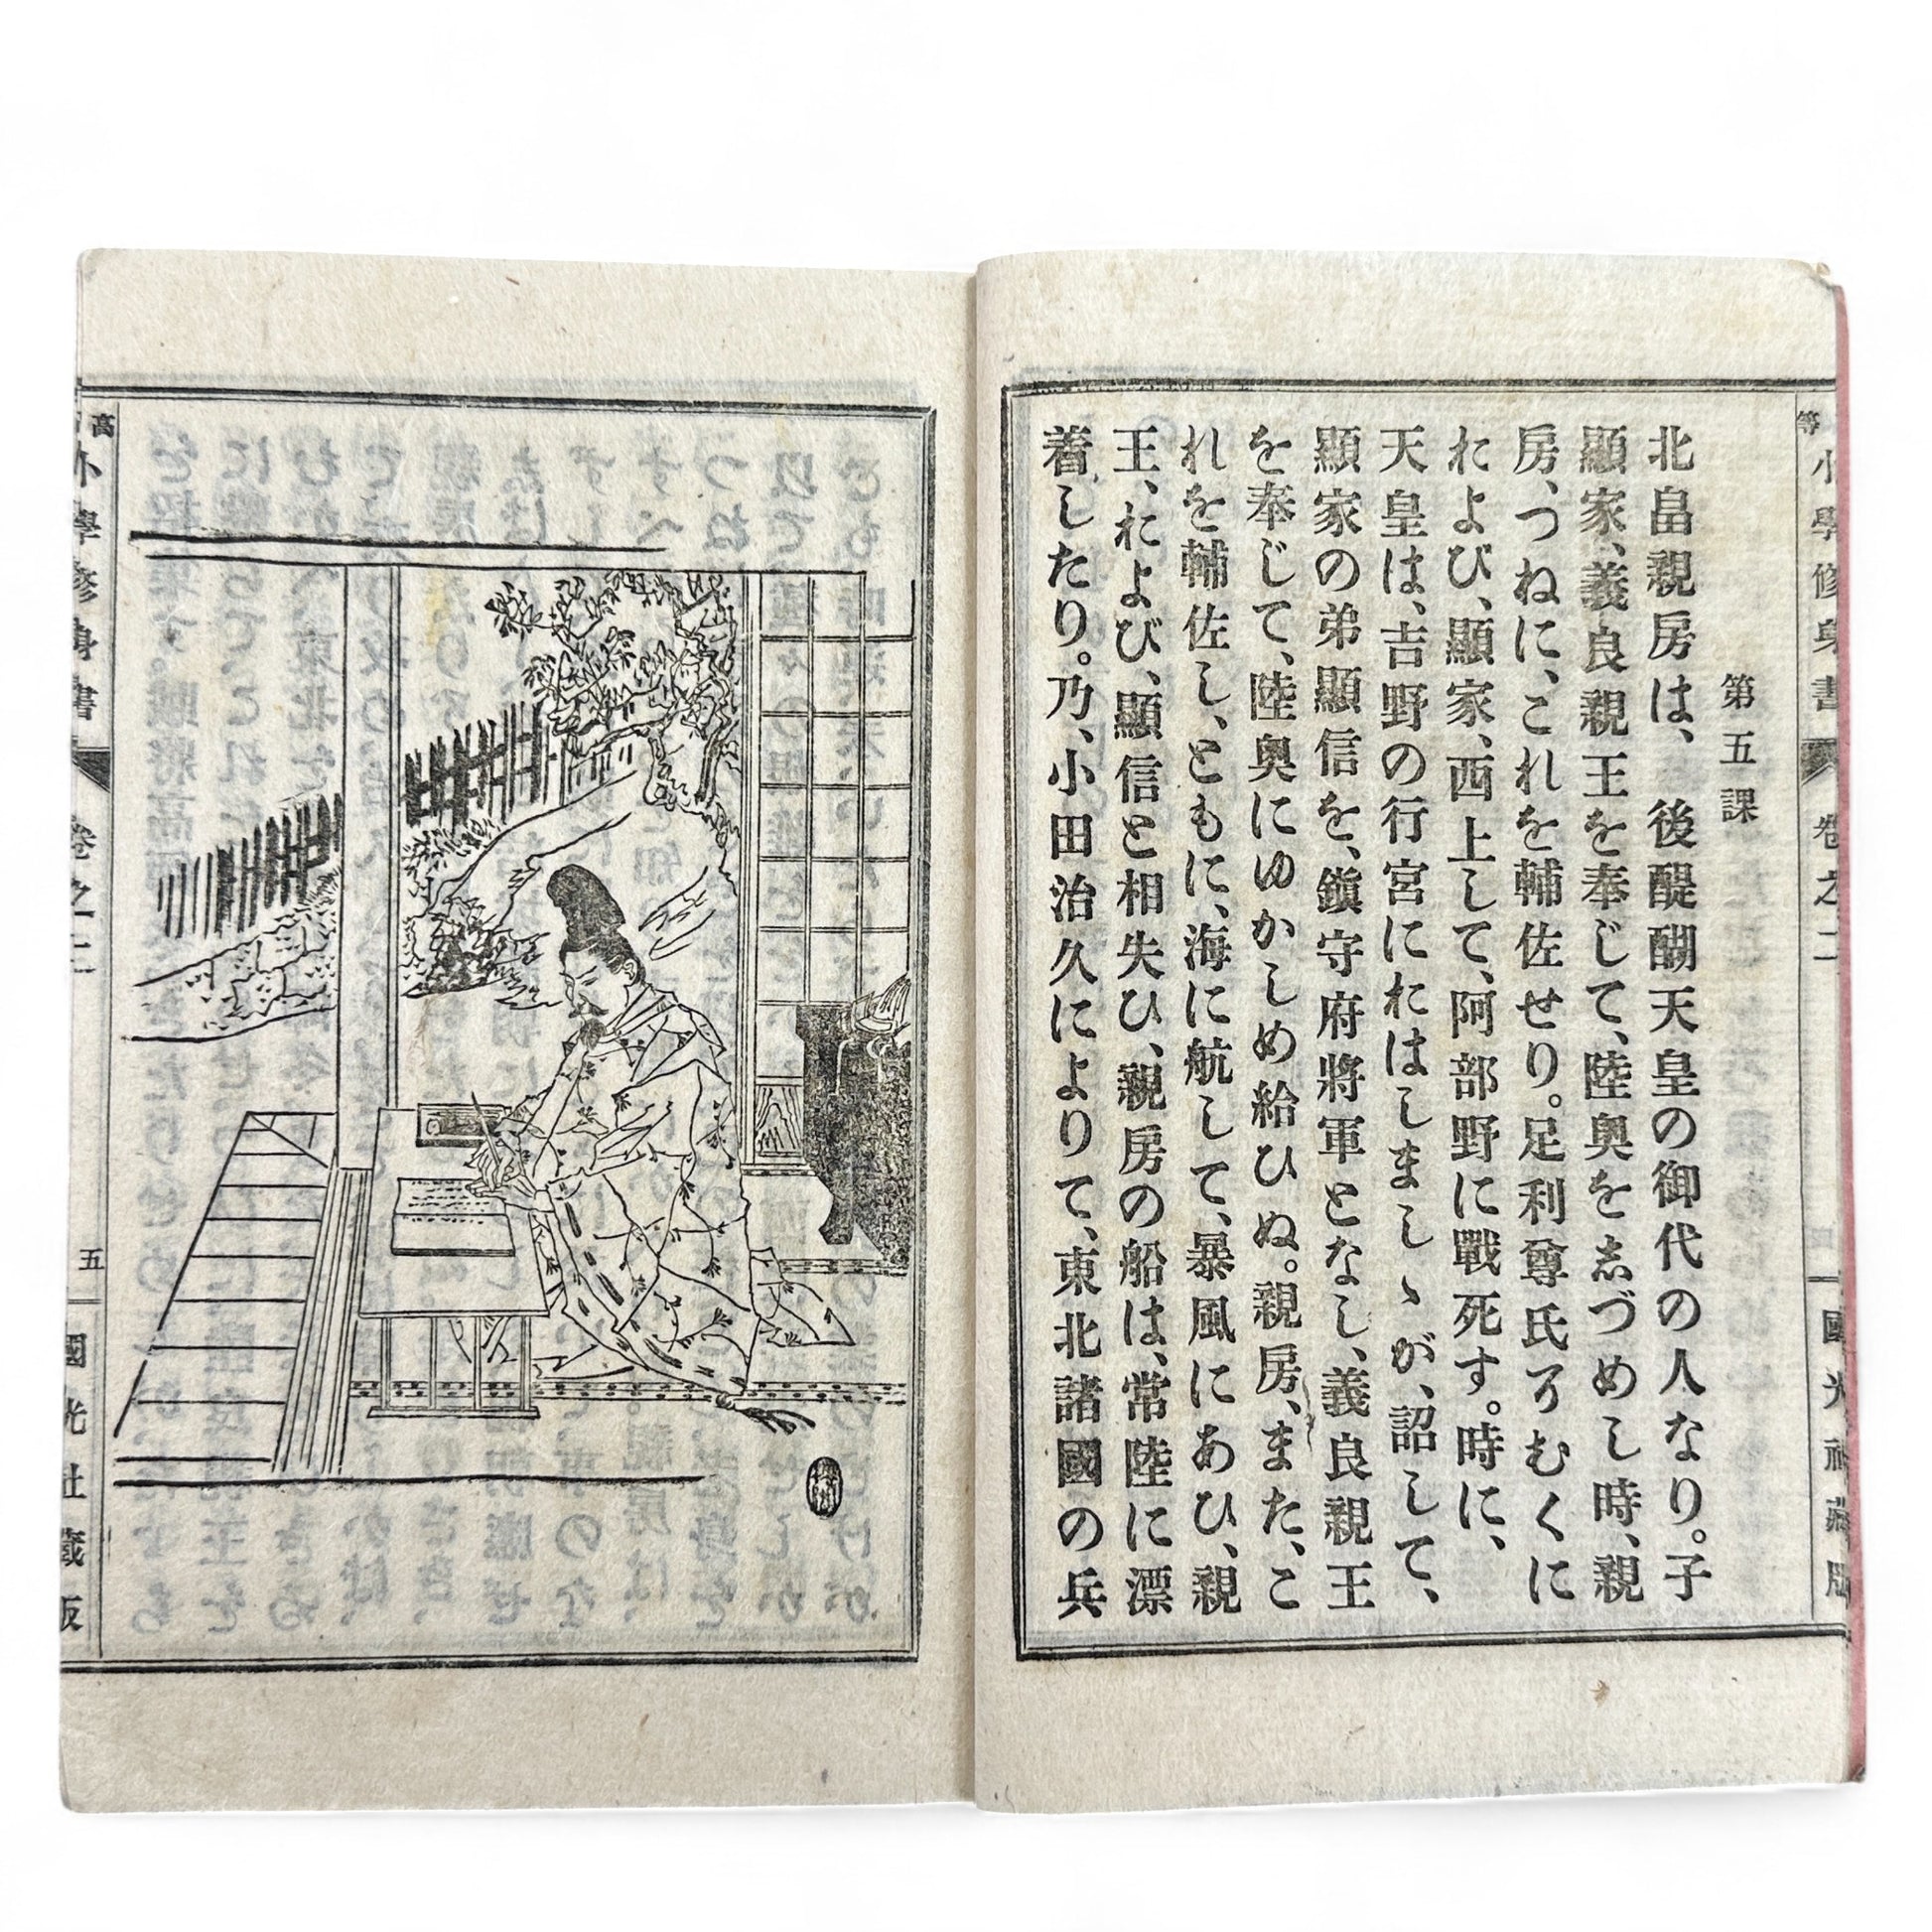 等
小學修身書
卷之二
國光社藏版
第五課
北畠親房は、後醍醐天皇の御代の人なり。子
顯家、義良親王を奉じて、陸奥を志づめし時、親
房、つねに、これを輔佐せり。足利尊氏そむくに
れよび、顯家、西上して、阿部野に戰死す。時に、
天皇は、吉野の行宮にれはしましゝが、詔して、
顯家の弟顯信を、鎭守府將軍となし、義良親王
を奉じて、陸奥にゆかしめ給ひぬ。親房、また、こ
れを輔佐し、ともに、海に航して、暴風にあひ、親
王、れよび、顯信と相失ひ、親房の船は、常陸に漂
着したり。乃、小田治久によりて、東北諸國の兵
高
小學修身書
卷之二
五
國光社藏版